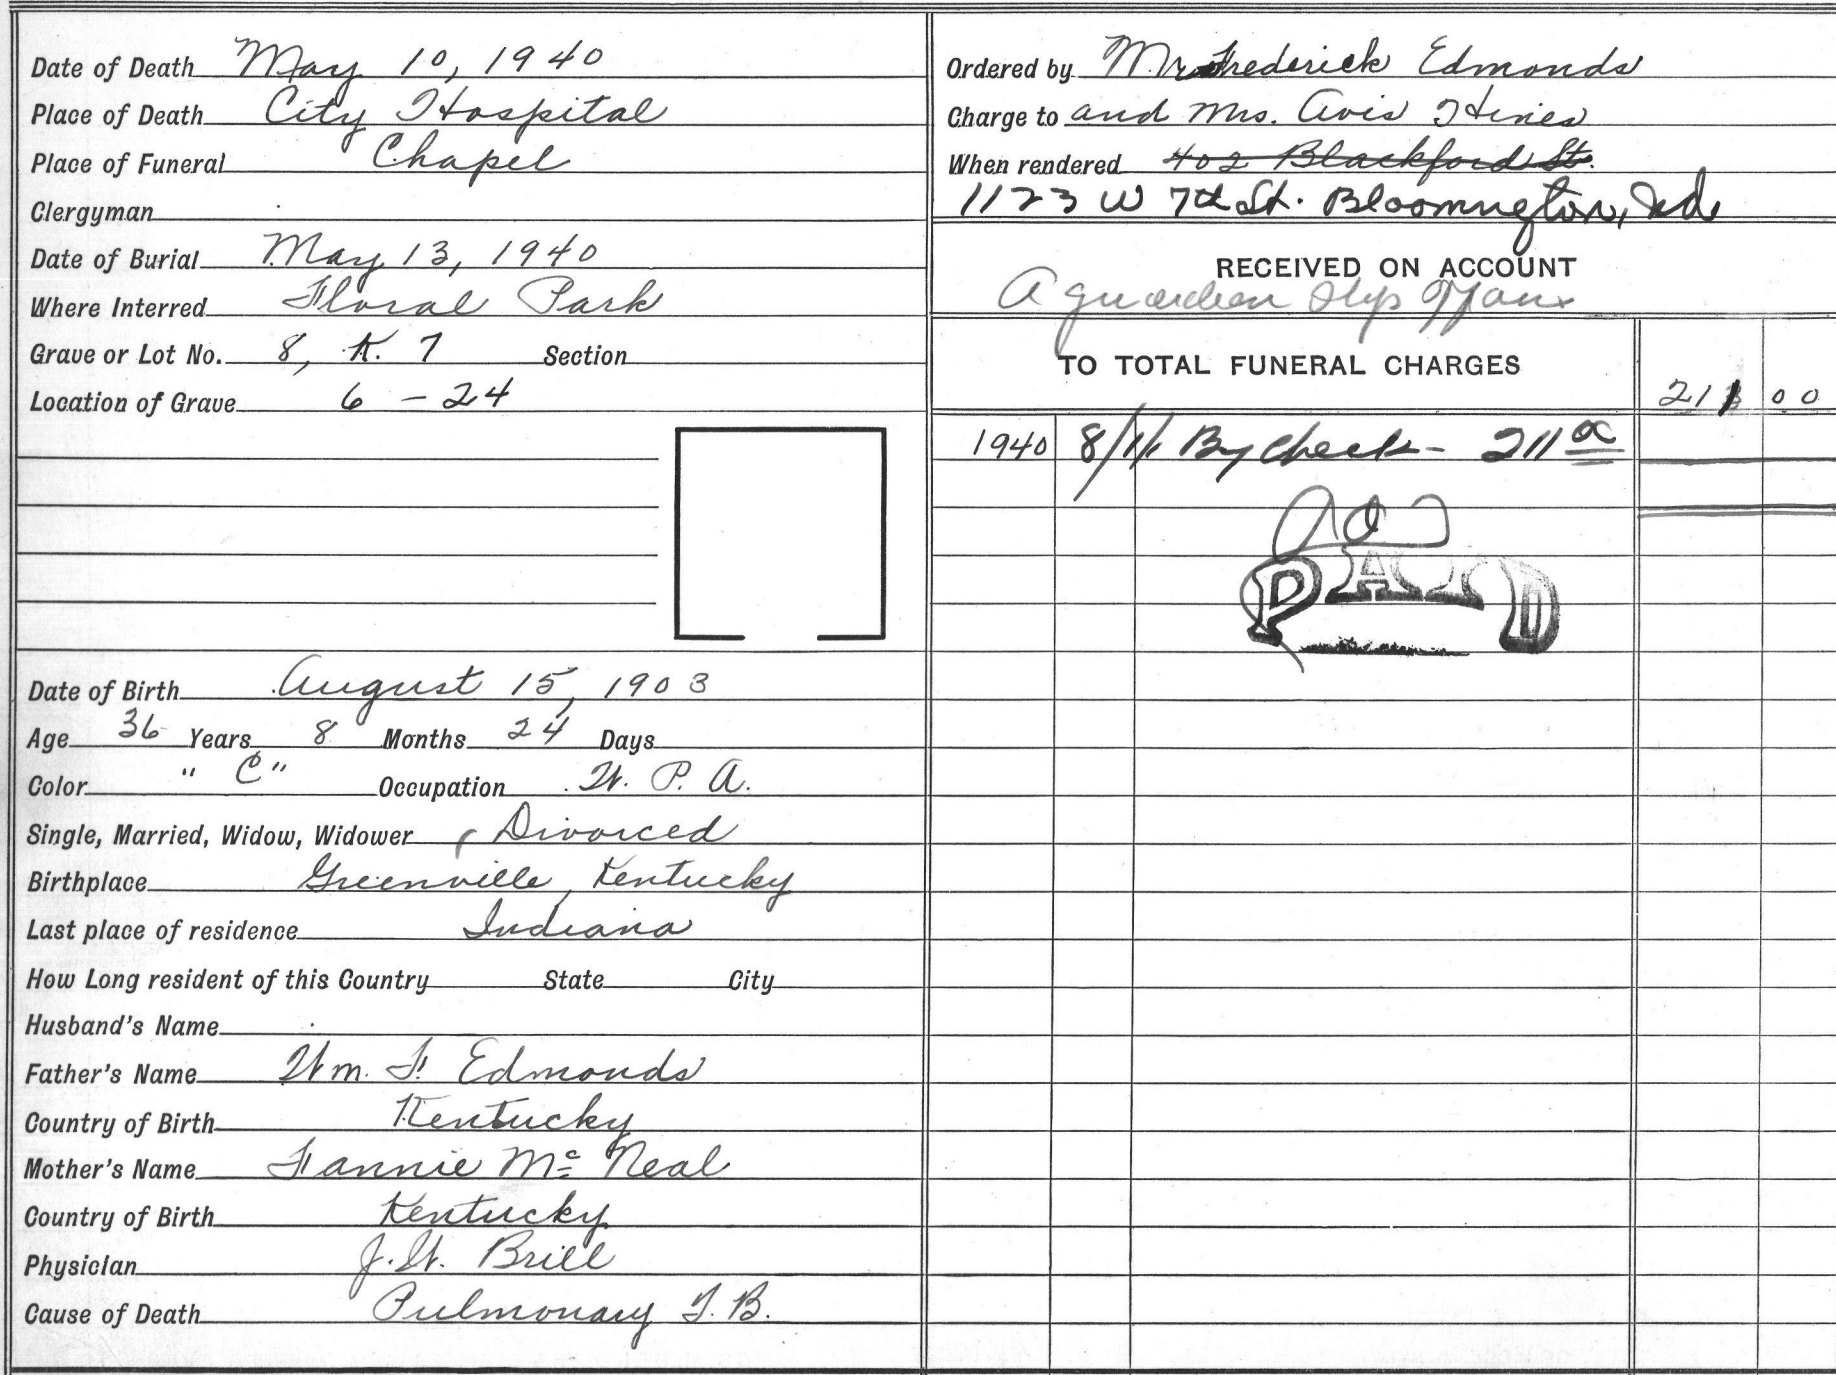 Date of Death May 10, 1940
Place of Death City Hospital
Place of Funeral Chapel
Clergyman
Date of Burial May 13, 1940
Where Interred Floral Park
Grave or Lot No. 8, K. 7 Section
Location of Grave 6 - 24
Date of Birth August 15, 1903
Age 36 Years 8 Months 24 Days
Color " C" Occupation W. P. A.
Single, Married, Widow, Widower Divorced
Birthplace Greenville, Kentucky
Last place of residence Indiana
How Long resident of this Country State City
Husband's Name
Father's Name Wm. F. Edmonds
Country of Birth Kentucky
Mother's Name Fannie Mc Neal
Country of Birth Kentucky
Physician J. W. Brill
Cause of Death Pulmonary T. B.
Ordered by Mr Frederick Edmonds
Charge to and Mrs. Avis Hines
When rendered 402 Blackford St.
1123 W 7th St. Bloomington, Ind
RECEIVED ON ACCOUNT
A guardian
TO TOTAL FUNERAL CHARGES 211 00
1940 8/11 By Check - 211 00
PAID